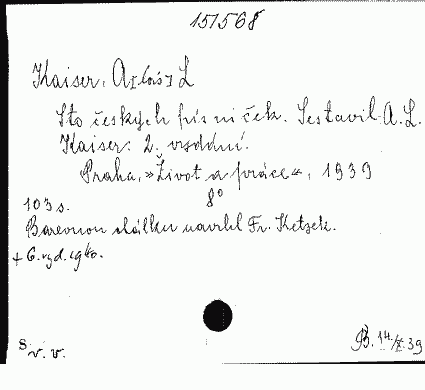 151568
Kaiser, A
Sto českých písniček. Sestavil A. L.
Kaiser. 2. vydání.
Praha, »Život a práce«, 1939
8°
103 s.
Barevnou obálku navrhl Fr. Ketzek.
+ 6. vyd. 1940.
s. v. v.
B. 14./X. 39